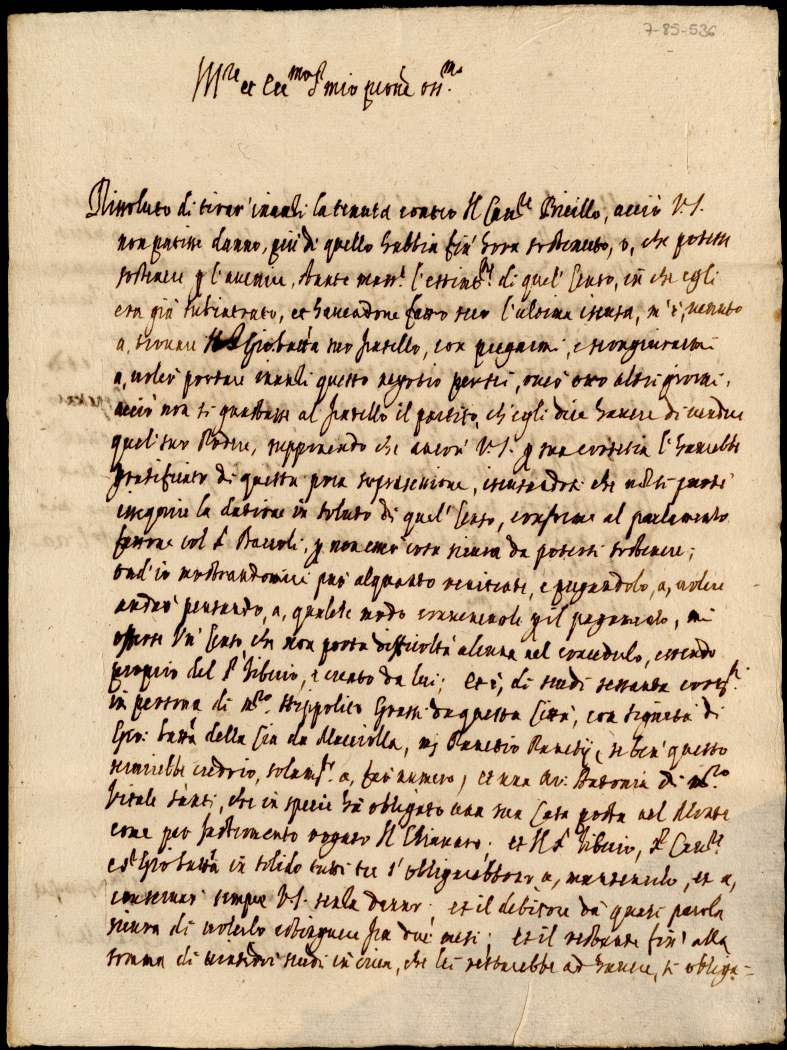 7-85-536
M.re et Ecc.mo S.r mio p̃rone oss.mo
Rissoluto di tirar' inanzi la tenuta contro Il Cau.re Bricillo, acciò V.S.
non patisse danno, più di quello habbia fin' hora sostenuto, o, che potesse
sostenere p l'auenire, stante mass.e l'estint.ne di quel' Censo, in che egli
era già subintrato, et hauendone fatto seco l'ultima scusa, m'è, uenuto
a, trouare Il S. Gio: batta suo fratello, con pregarmi, e scongiurarmi
a, uoler portare inanzi questo negotio per sei, ouer' otto altri giorni,
acciò non si guastasse al fratello il partito, ch'egli dice hauere di uendere
quel suo Podere, supponendo che ancor' V.S. p sua cortesia l'hauerebbe
gratificato di questa poca soprasessione, scusandosi che no si puote
esseguire la datione in soluto di quel' Censo, conforme al parlamento
fattone col S. Baccioli, p non esser cosa sicura da potersi sostenere;
ond'io mostrandomeci pur' alquanto renitente, e pregandolo, a, uolere
andar' pensando, a, qualche modo conueneuole p il pagamento, mi
offerse Un' Censo, che non porta difficoltà alcuna nel concederlo, essendo
proprio del S.r Tiberio, e creato da lui; et è, di scudi sessanta
in persona di m.ro Hippolito Grassi da questa Città, con sigurtà di
Gio: batta della Cia da Macciolla, m.s Pancrio
seruirebbe, solam.te a, far' numero, et una M. Antonia di m.ro
Vitale Santi, che in specie hà obligato una sua Casa posta nel Monte
come per Instromento rogato Il Chiauaro; et Il S. Tiberio, S.r Cau.re
e S.r Gio: batta in solido tutti tre s'obligarebbono a, mantenerlo, et a,
conseruar' sempre V.S. senza danno. et il debitore dà quasi parola
sicura di uolerlo estinguere fra due mesi; et il restante fin' alla
somma di scudi in circa, che lei restarebbe ad hauere, si obliga=